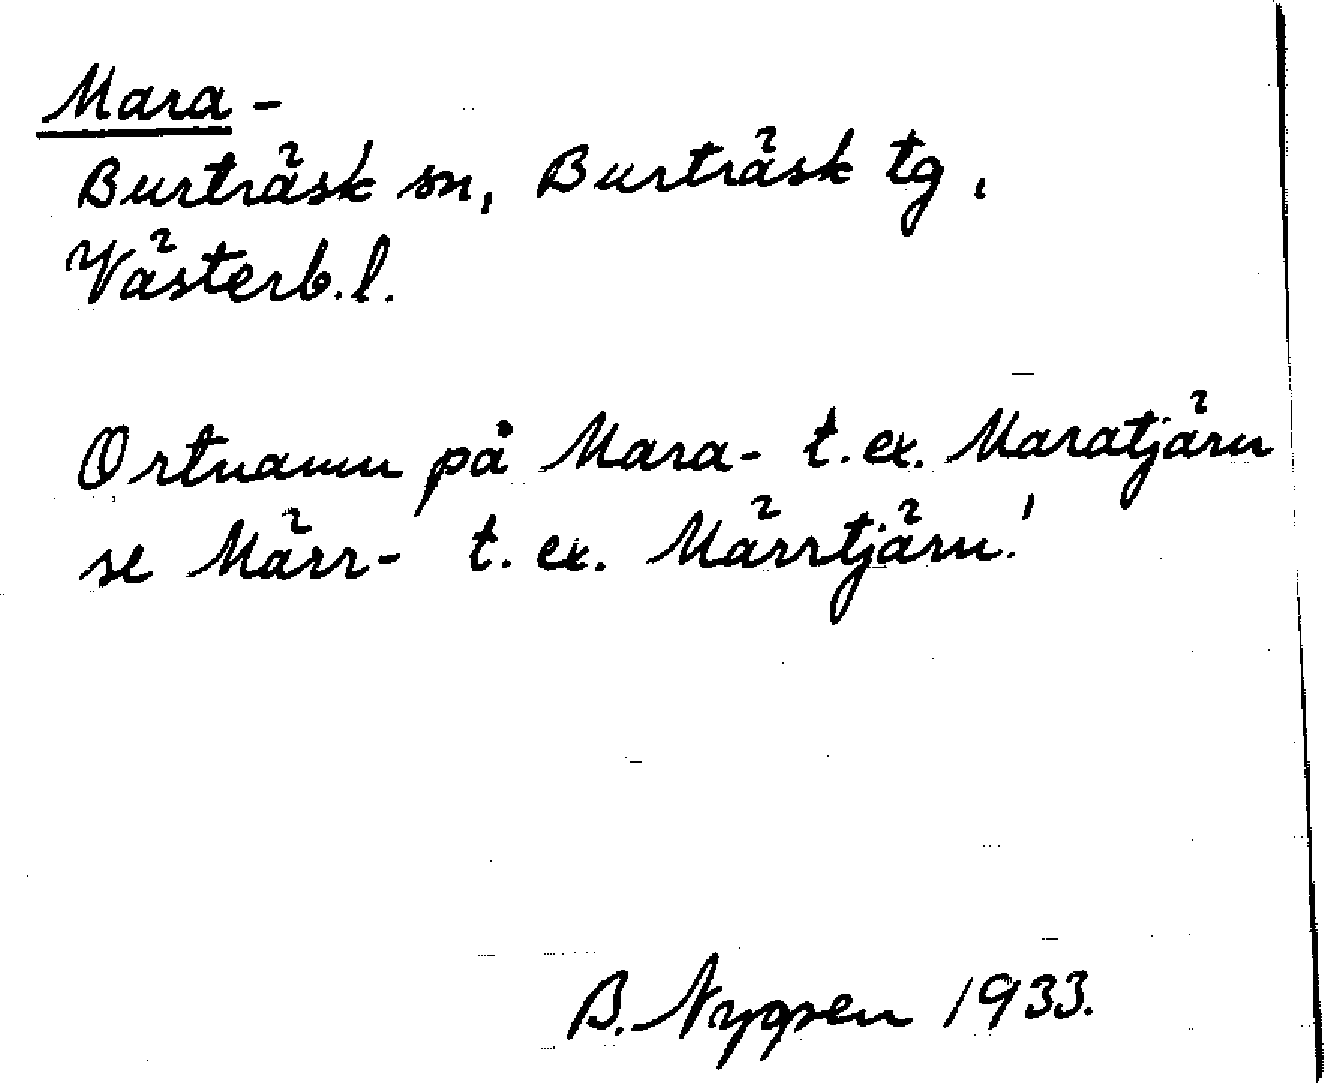 Mara-
Burträsk sn, Burträsk tg,
Västerb.l.
Ortnamn på Mara- t.ex. Maratjärn
se Märr- t.ex. Märrtjärn!
B. Nygren 1933.